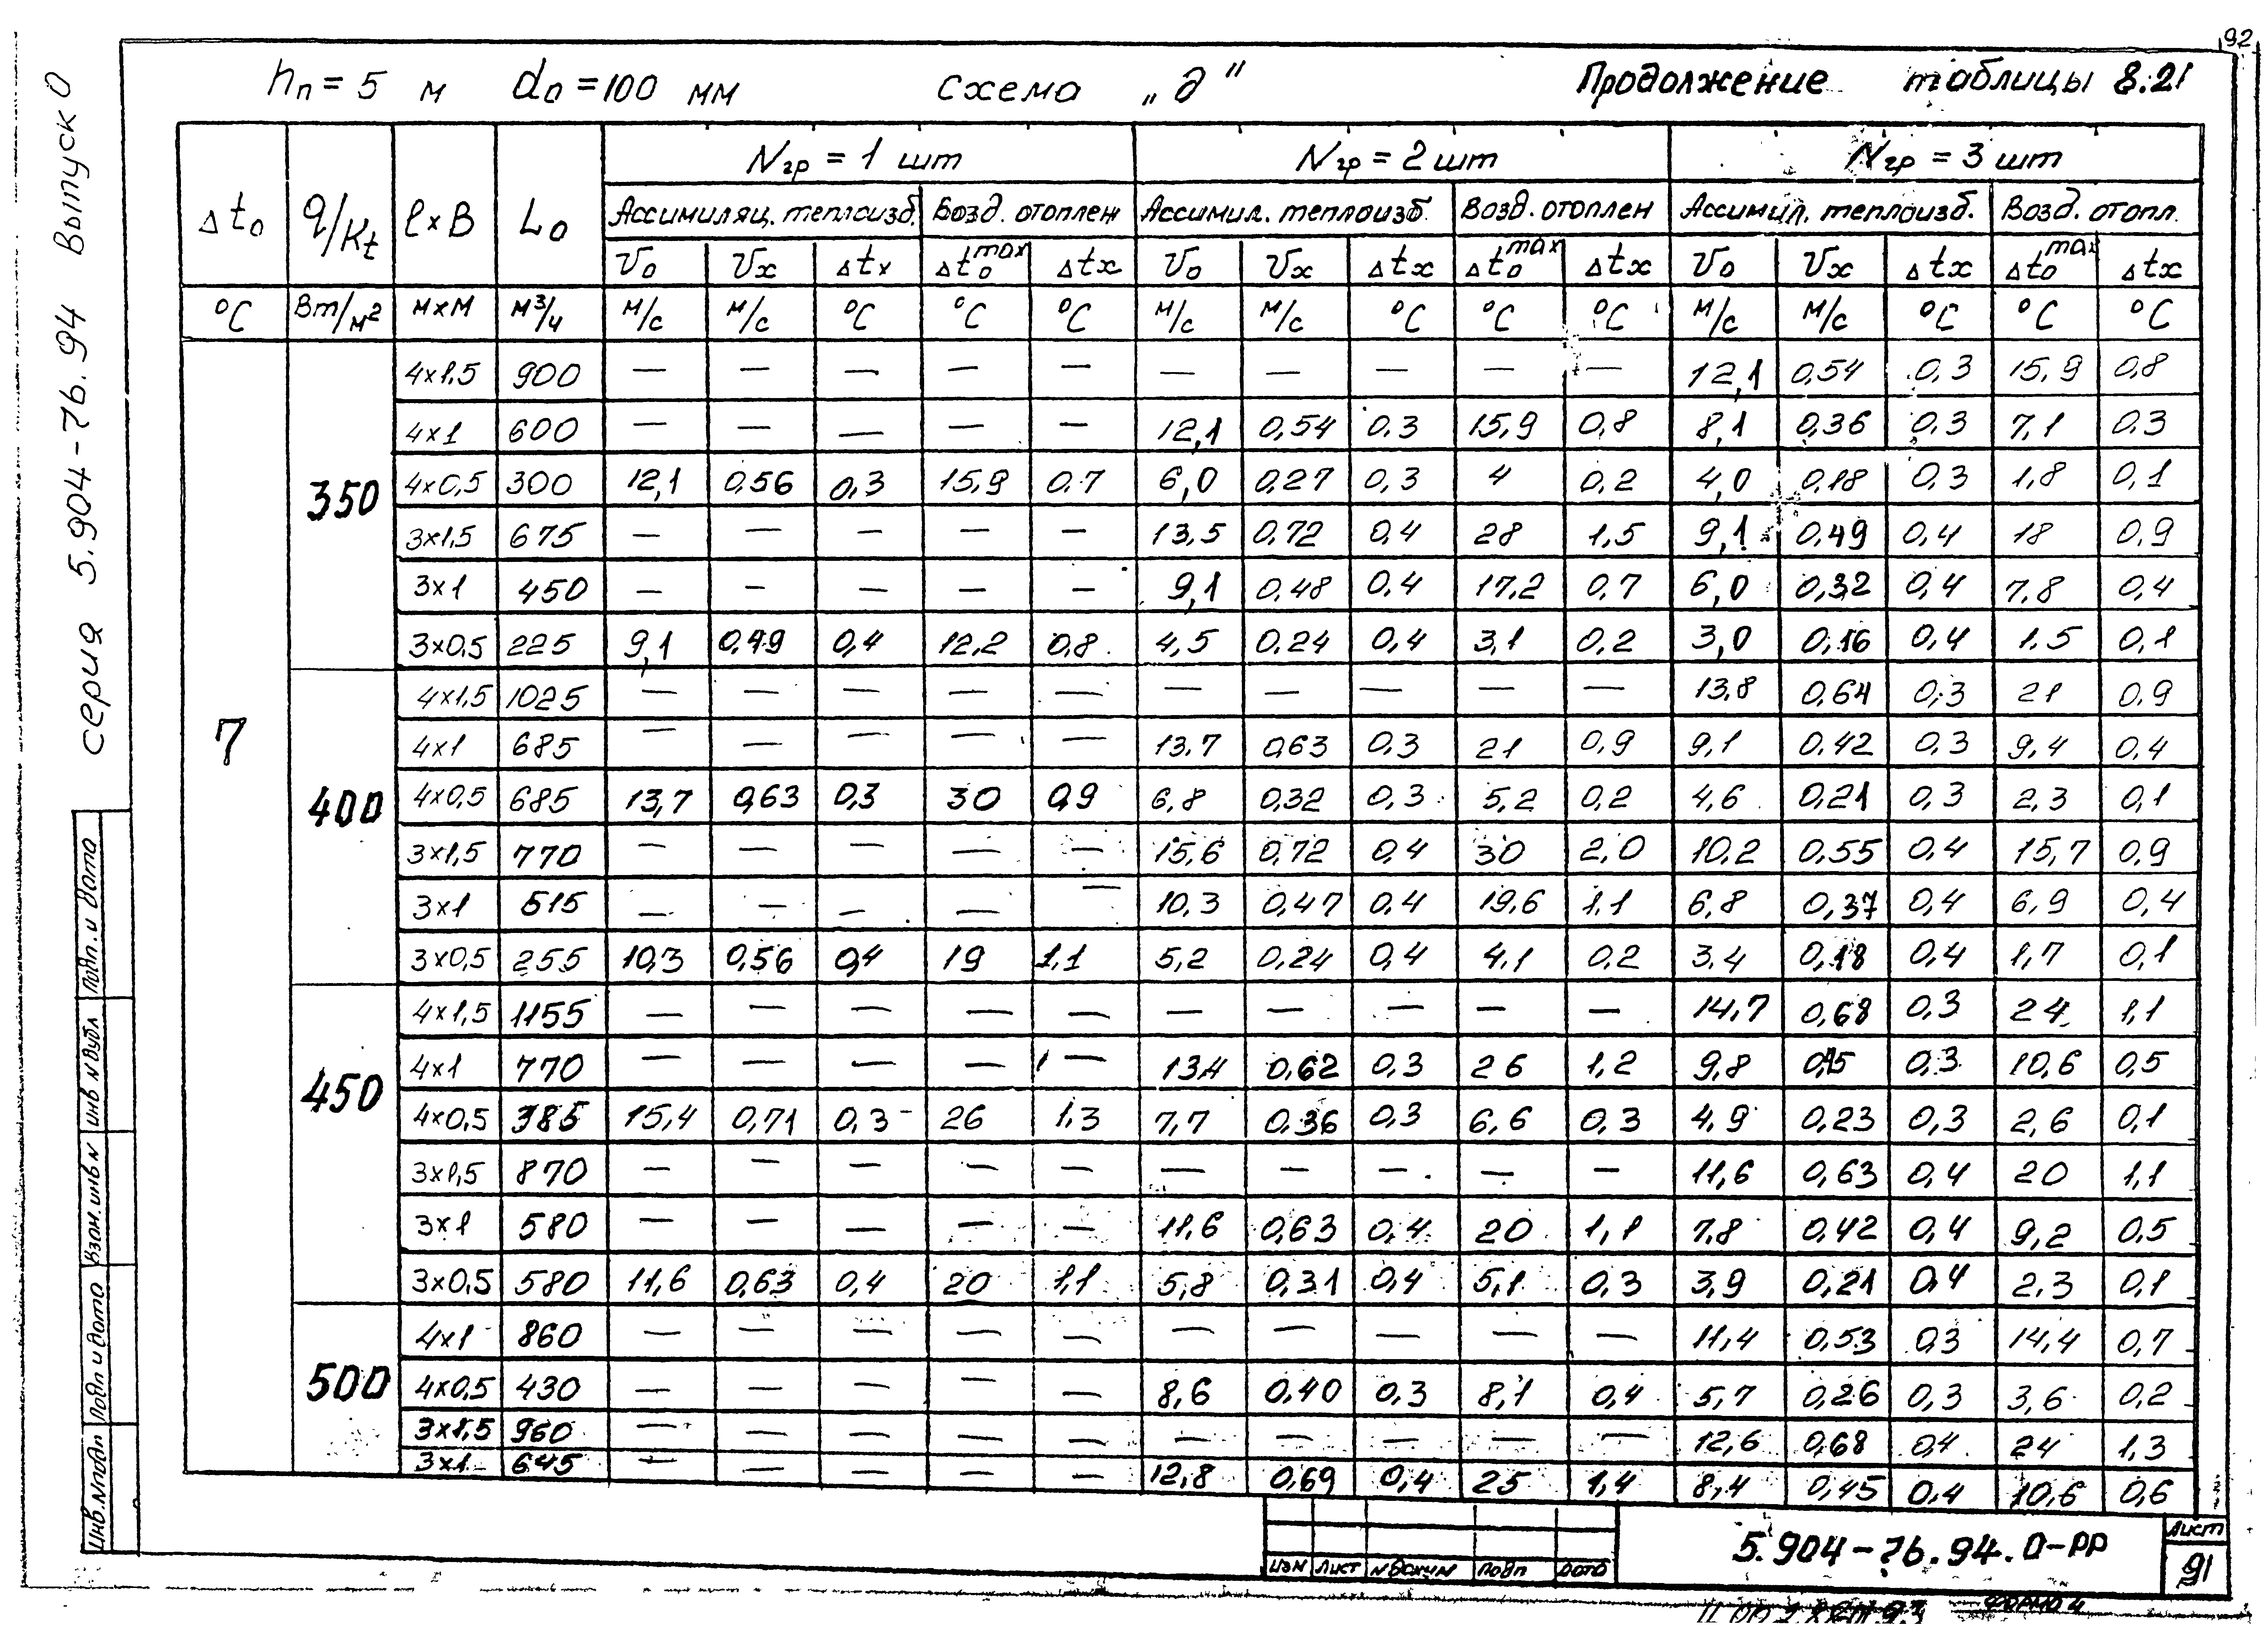 92
hп = 5 м d₀ = 100 мм схема „д" Продолжение таблицы 8.21
серия 5.904-76.94 Выпуск 0
Δt₀ q/Kt l×B L₀ Nгр = 1 шт Nгр = 2 шт Nгр = 3 шт
Ассимиляц. теплоизб. Возд. отоплен Ассимил. теплоизб. Возд. отоплен Ассимил. теплоизб. Возд. отопл.
V₀ Vx Δtx Δt₀max Δtx V₀ Vx Δtx Δt₀max Δtx V₀ Vx Δtx Δt₀max Δtx
°C Вт/м² м×м м³/ч м/с м/с °C °C °C м/с м/с °C °C °C м/с м/с °C °C °C
7
350
4×1,5 900 — — — — — — — — — — 12,1 0,54 0,3 15,9 0,8
4×1 600 — — — — — 12,1 0,54 0,3 15,9 0,8 8,1 0,36 0,3 7,1 0,3
4×0,5 300 12,1 0,56 0,3 15,9 0,7 6,0 0,27 0,3 4 0,2 4,0 0,18 0,3 1,8 0,1
3×1,5 675 — — — — — 13,5 0,72 0,4 28 1,5 9,1 0,49 0,4 18 0,9
3×1 450 — — — — — 9,1 0,48 0,4 17,2 0,7 6,0 0,32 0,4 7,8 0,4
3×0,5 225 9,1 0,49 0,4 12,2 0,8 4,5 0,24 0,4 3,1 0,2 3,0 0,16 0,4 1,5 0,1
400
4×1,5 1025 — — — — — — — — — — 13,8 0,64 0,3 21 0,9
4×1 685 — — — — — 13,7 0,63 0,3 21 0,9 9,1 0,42 0,3 9,4 0,4
4×0,5 685 13,7 0,63 0,3 30 0,9 6,8 0,32 0,3 5,2 0,2 4,6 0,21 0,3 2,3 0,1
3×1,5 770 — — — — — 15,6 0,72 0,4 30 2,0 10,2 0,55 0,4 15,7 0,9
3×1 515 — — — — — 10,3 0,47 0,4 19,6 1,1 6,8 0,37 0,4 6,9 0,4
3×0,5 255 10,3 0,56 0,4 19 1,1 5,2 0,24 0,4 4,1 0,2 3,4 0,18 0,4 1,7 0,1
450
4×1,5 1155 — — — — — — — — — — 14,7 0,68 0,3 24 1,1
4×1 770 — — — — — 13,4 0,62 0,3 26 1,2 9,8 0,45 0,3 10,6 0,5
4×0,5 385 15,4 0,71 0,3 26 1,3 7,7 0,36 0,3 6,6 0,3 4,9 0,23 0,3 2,6 0,1
3×1,5 870 — — — — — — — — — — 11,6 0,63 0,4 20 1,1
3×1 580 — — — — — 11,6 0,63 0,4 20 1,1 7,8 0,42 0,4 9,2 0,5
3×0,5 580 11,6 0,63 0,4 20 1,1 5,8 0,31 0,4 5,1 0,3 3,9 0,21 0,4 2,3 0,1
500
4×1 860 — — — — — — — — — — 11,4 0,53 0,3 14,4 0,7
4×0,5 430 — — — — — 8,6 0,40 0,3 8,1 0,4 5,7 0,26 0,3 3,6 0,2
3×1,5 960 — — — — — — — — — — 12,6 0,68 0,4 24 1,3
3×1 645 — — — — — 12,8 0,69 0,4 25 1,4 8,4 0,45 0,4 10,6 0,6
Инв.№подл Подп и дата Взам.инв N инв № дубл Подп. и дата
изм лист № докум Подп дата
5.904-76.94.0-РР
Лист
91
формат